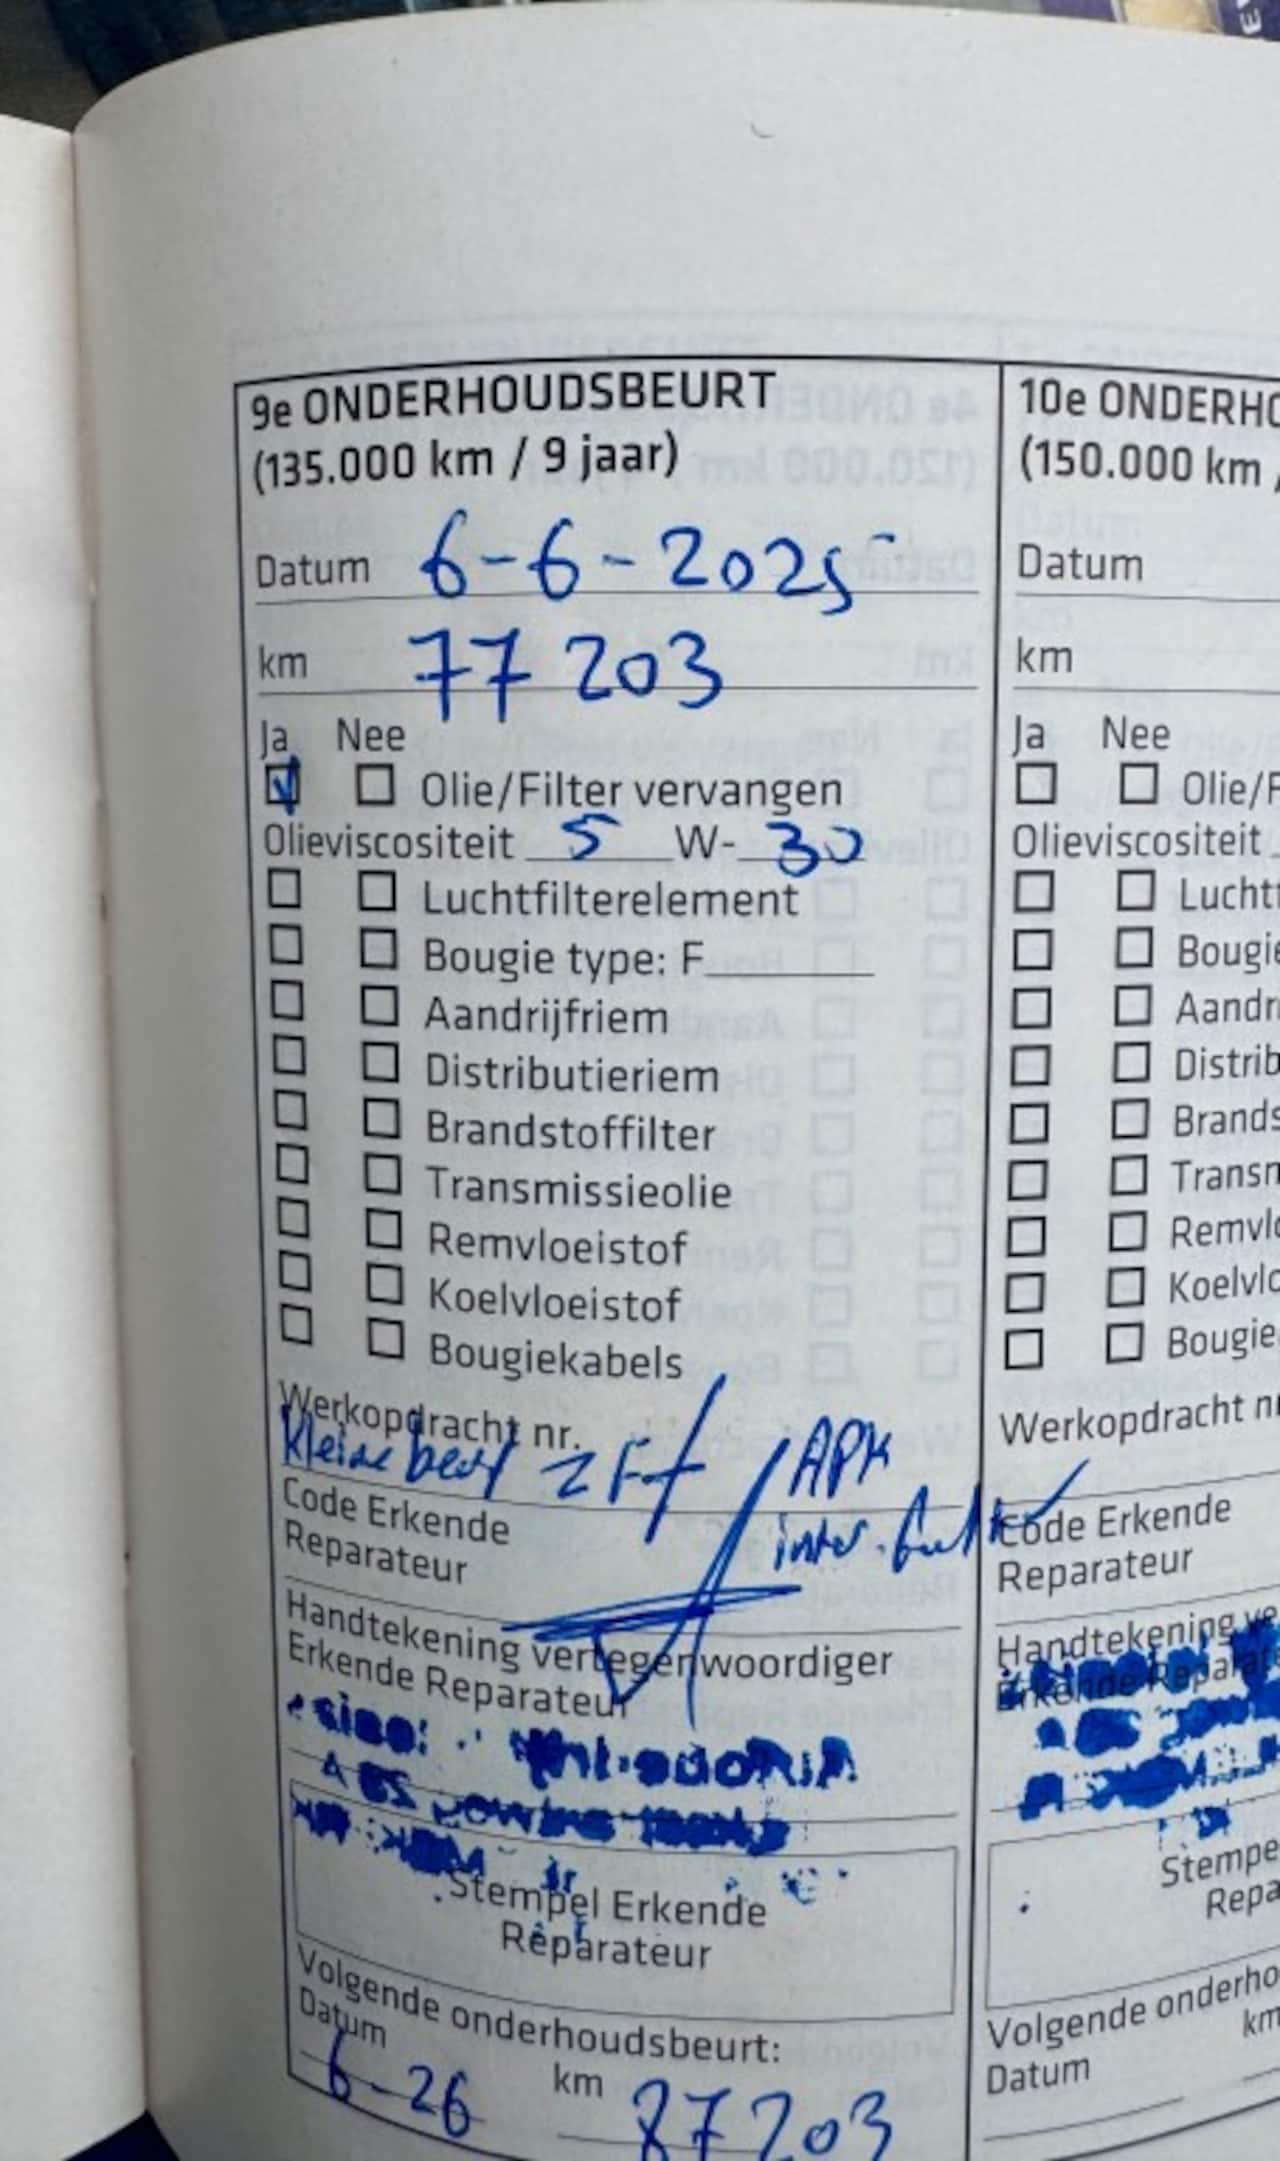 9e ONDERHOUDSBEURT
(135.000 km / 9 jaar)
Datum 6-6-2025
km 77 203
Ja Nee
Olie/Filter vervangen
Olieviscositeit 5 W- 30
Luchtfilterelement
Bougie type: F
Aandrijfriem
Distributieriem
Brandstoffilter
Transmissieolie
Remvloeistof
Koelvloeistof
Bougiekabels
Werkopdracht nr.
kleine beurt
APK
Code Erkende
Reparateur
Handtekening vertegenwoordiger
Erkende Reparateur
Stempel Erkende
Reparateur
Volgende onderhoudsbeurt:
Datum
6-26 km 87203
10e ONDERHO
(150.000 km /
Datum
km
Ja Nee
Olie/F
Olieviscositeit
Luchtf
Bougie
Aandri
Distrib
Brands
Transm
Remvlo
Koelvlo
Bougie
Werkopdracht nr
Code Erkende
Reparateur
Handtekening ve
Erkende Reparate
Stempe
Repa
Volgende onderho
Datum km